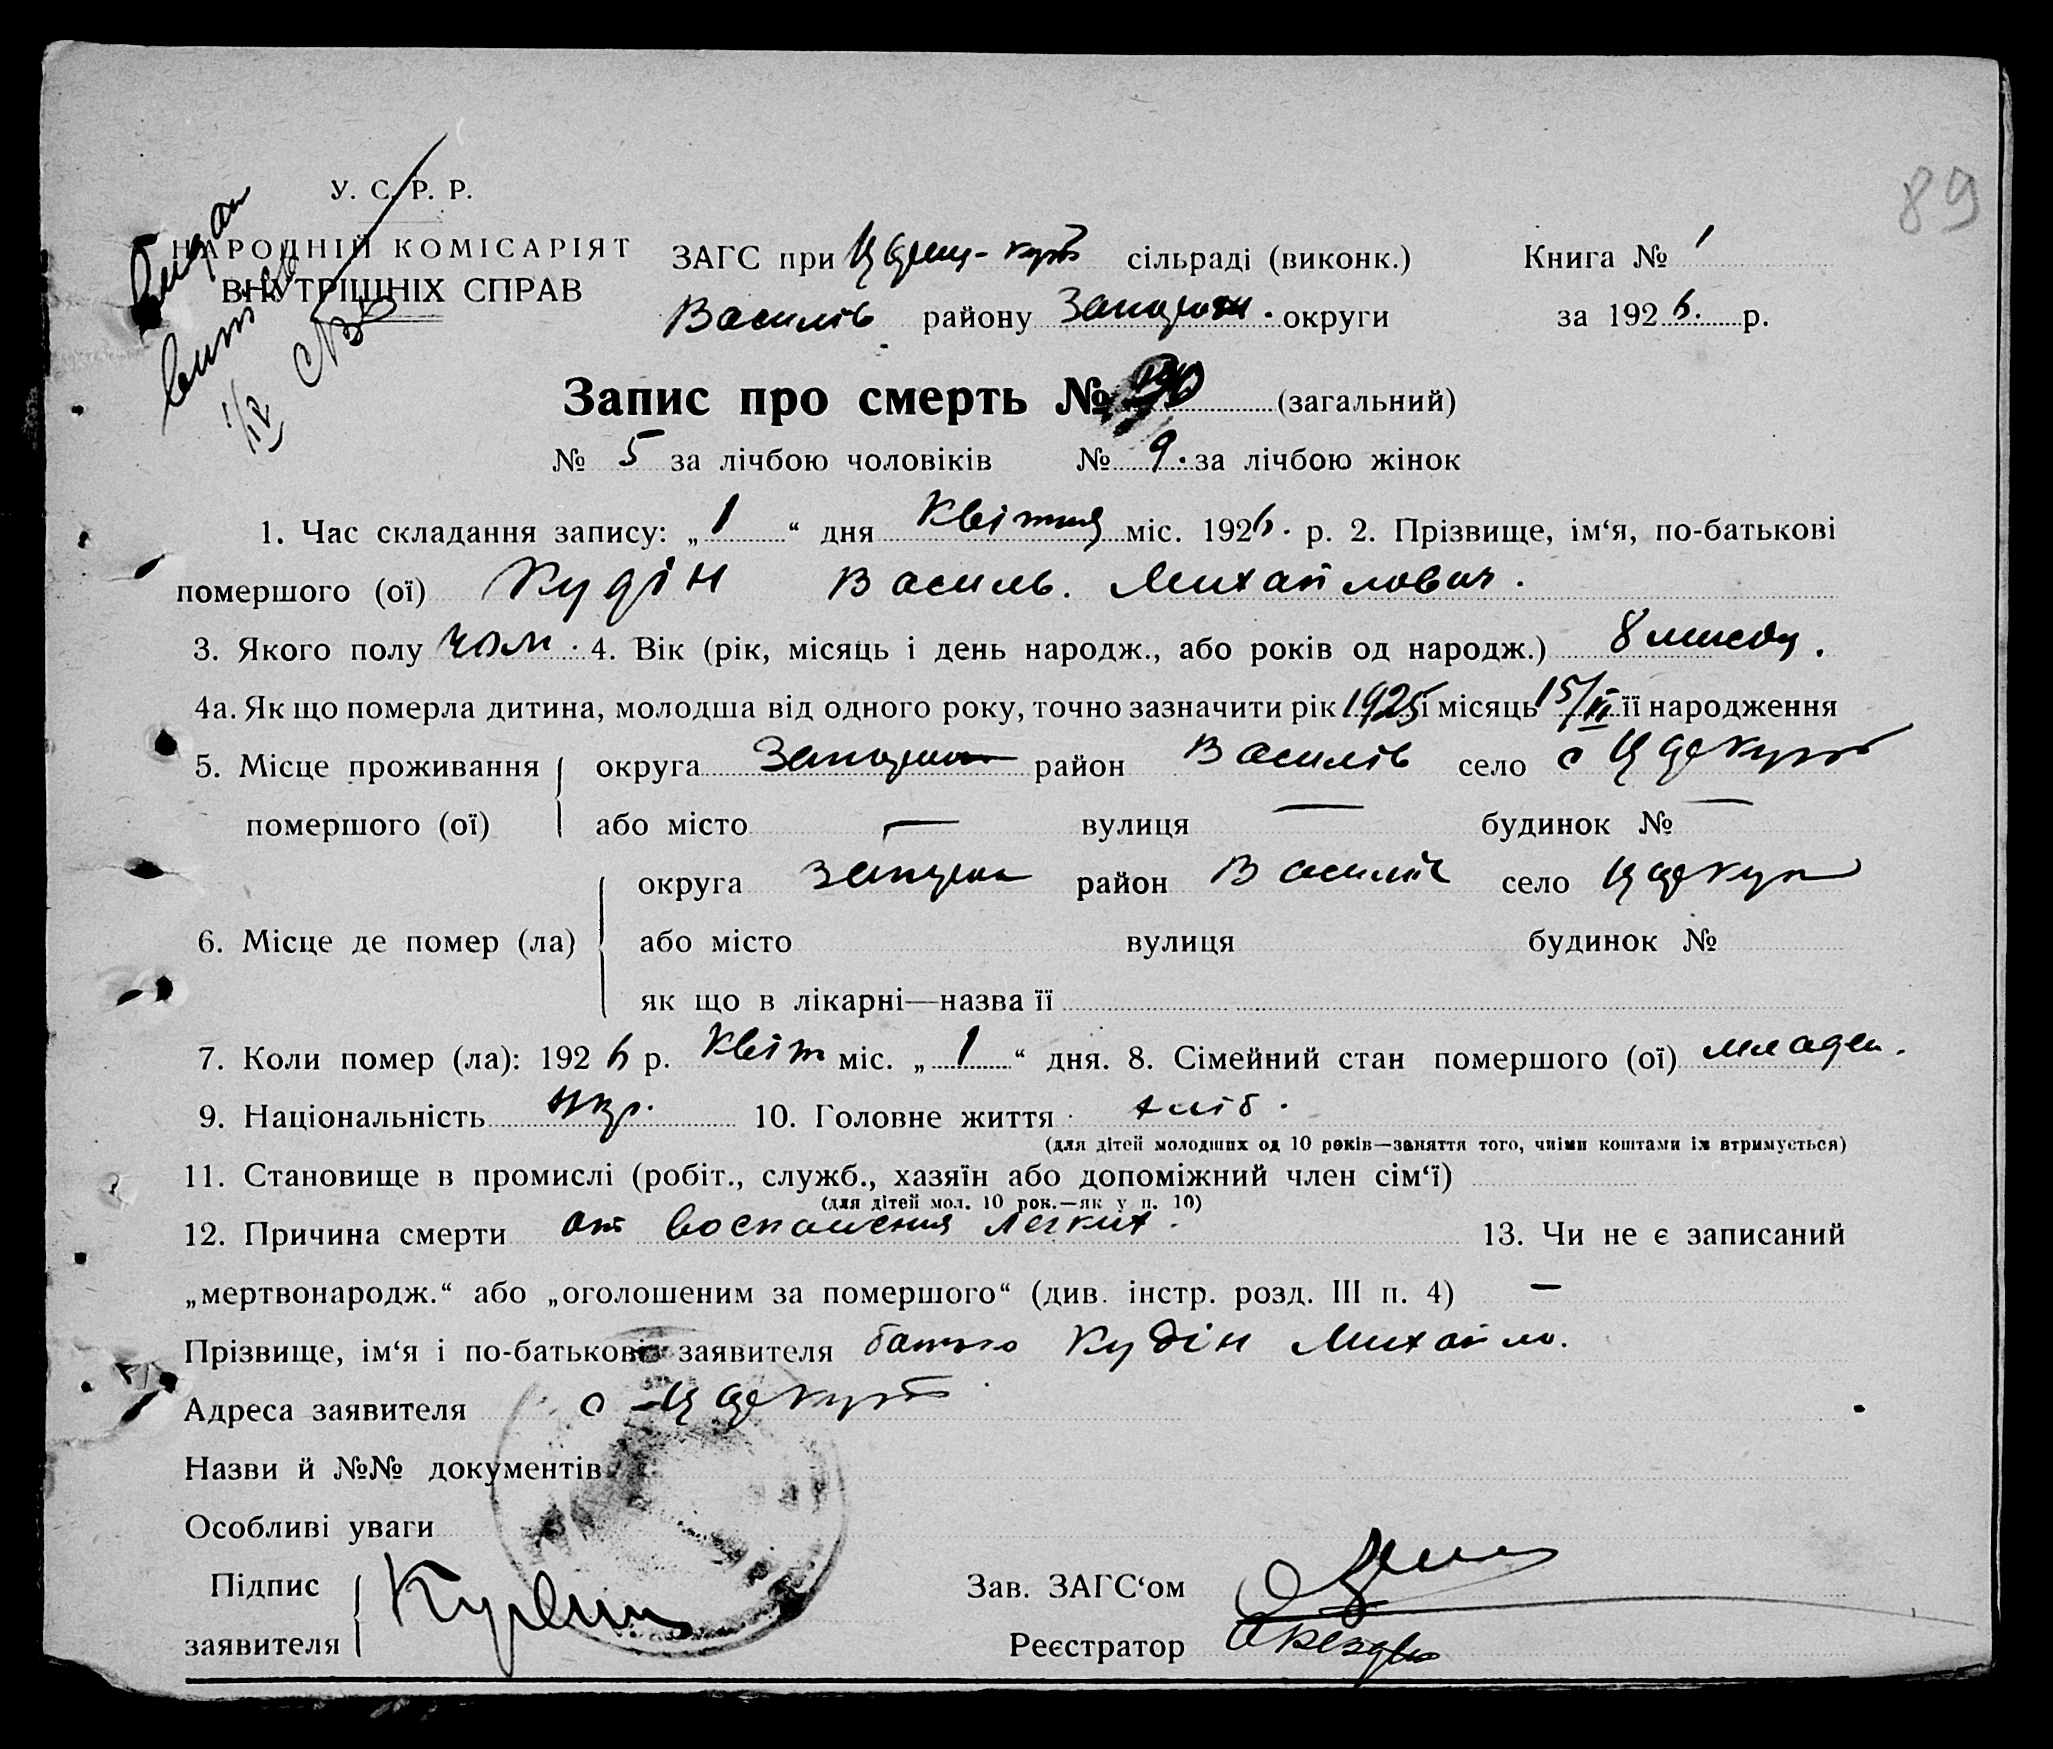 89
У. С. Р. Р.
НАРОДНІЙ КОМІСАРІЯТ
ВНУТРІШНІХ СПРАВ
ЗАГС при сільраді (виконк.) Книга № 1
Василів району округи за 1926. р.
Запис про смерть № (загальний)
№ 5 за лічбою чоловіків № 9. за лічбою жінок
1. Час складання запису: „ 1 “ дня Квітня міс. 1926. р. 2. Прізвище, ім‘я, по-батькові
помершого (ої) Кудін Василь. Михайлович.
3. Якого полу чол. 4. Вік (рік, місяць і день народж., або років од народж.) 8
4а. Як що померла дитина, молодша від одного року, точно зазначити рік 1925 і місяць 15/ її народження
5. Місце проживання округа район Василів село с
помершого (ої) або місто — вулиця — будинок № —
округа район Василів село
6. Місце де помер (ла) або місто вулиця будинок №
як що в лікарні—назва її
7. Коли помер (ла): 1926 р. Квіт міс. „ 1 “ дня. 8. Сімейний стан помершого (ої) младен.
9. Національність Укр. 10. Головне життя хліб.
(для дітей молодших од 10 років—заняття того, чиїми коштами їх втримується)
11. Становище в промислі (робіт., служб., хазяїн або допоміжний член сім‘ї)
(для дітей мол. 10 рок.—як у п. 10)
12. Причина смерти от воспаления легких. 13. Чи не є записаний
„мертвонародж.“ або „оголошеним за помершого“ (див. інстр. розд. III п. 4) —
Прізвище, ім‘я і по-батькові заявителя батько Кудін Михайло.
Адреса заявителя с
Назви й №№ документів
Особливі уваги
Підпис Зав. ЗАГС‘ом
заявителя Реєстратор